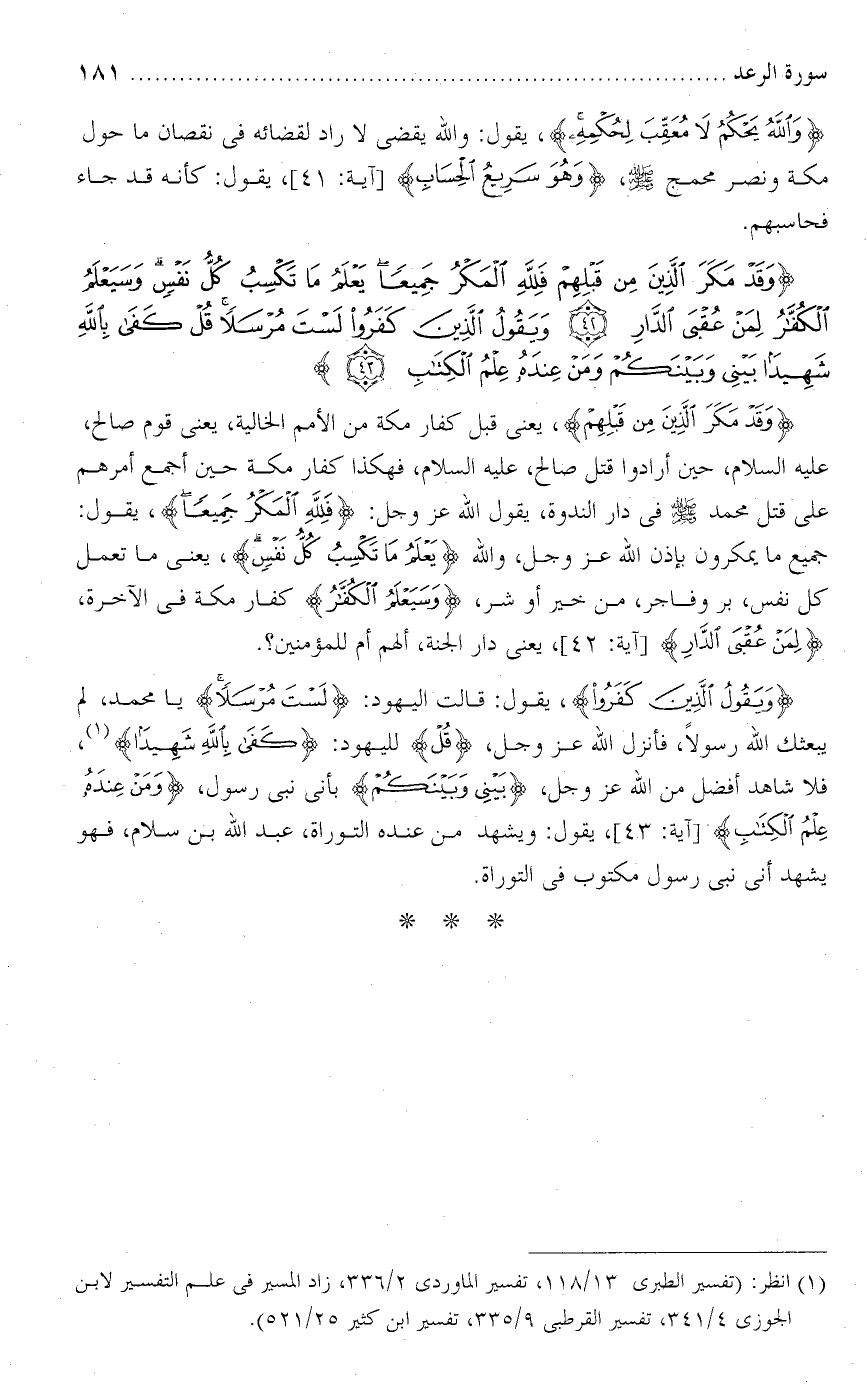 سورة الرعد ........................................................................ ١٨١
﴿وَٱللَّهُ يَحۡكُمُ لَا مُعَقِّبَ لِحُكۡمِهِۦۚ﴾، يقول: والله يقضى لا راد لقضائه فى نقصان ما حول
مكة ونصر محمج ﷺ، ﴿وَهُوَ سَرِيعُ ٱلۡحِسَابِ﴾ [آية: ٤١]، يقول: كأنه قد جاء
فحاسبهم.
﴿وَقَدۡ مَكَرَ ٱلَّذِينَ مِن قَبۡلِهِمۡ فَلِلَّهِ ٱلۡمَكۡرُ جَمِيعٗاۖ يَعۡلَمُ مَا تَكۡسِبُ كُلُّ نَفۡسٖۗ وَسَيَعۡلَمُ
ٱلۡكُفَّٰرُ لِمَنۡ عُقۡبَى ٱلدَّارِ ٤٢ وَيَقُولُ ٱلَّذِينَ كَفَرُواْ لَسۡتَ مُرۡسَلٗاۚ قُلۡ كَفَىٰ بِٱللَّهِ
شَهِيدَۢا بَيۡنِي وَبَيۡنَكُمۡ وَمَنۡ عِندَهُۥ عِلۡمُ ٱلۡكِتَٰبِ ٤٣﴾
﴿وَقَدۡ مَكَرَ ٱلَّذِينَ مِن قَبۡلِهِمۡ﴾، يعنى قبل كفار مكة من الأمم الخالية، يعنى قوم صالح،
عليه السلام، حين أرادوا قتل صالح، عليه السلام، فهكذا كفار مكة حين أجمع أمرهم
على قتل محمد ﷺ فى دار الندوة، يقول الله عز وجل: ﴿فَلِلَّهِ ٱلۡمَكۡرُ جَمِيعٗاۖ﴾، يقول:
جميع ما يمكرون بإذن الله عز وجل، والله ﴿يَعۡلَمُ مَا تَكۡسِبُ كُلُّ نَفۡسٖۗ﴾، يعنى ما تعمل
كل نفس، بر وفاجر، من خير أو شر، ﴿وَسَيَعۡلَمُ ٱلۡكُفَّٰرُ﴾ كفار مكة فى الآخرة،
﴿لِمَنۡ عُقۡبَى ٱلدَّارِ﴾ [آية: ٤٢]، يعنى دار الجنة، ألهم أم للمؤمنين؟.
﴿وَيَقُولُ ٱلَّذِينَ كَفَرُواْ﴾، يقول: قالت اليهود: ﴿لَسۡتَ مُرۡسَلٗاۚ﴾ يا محمد، لم
يبعثك الله رسولاً، فأنزل الله عز وجل، ﴿قُلۡ﴾ لليهود: ﴿كَفَىٰ بِٱللَّهِ شَهِيدَۢا﴾(١)،
فلا شاهد أفضل من الله عز وجل، ﴿بَيۡنِي وَبَيۡنَكُمۡ﴾ بأنى نبى رسول، ﴿وَمَنۡ عِندَهُۥ
عِلۡمُ ٱلۡكِتَٰبِ﴾ [آية: ٤٣]، يقول: ويشهد من عنده التوراة، عبد الله بن سلام، فهو
يشهد أنى نبى رسول مكتوب فى التوراة.
* * *
(١) انظر: (تفسير الطبرى ١١٨/١٣، تفسير الماوردى ٣٣٦/٢، زاد المسير فى علم التفسير لابن
الجوزى ٣٤١/٤، تفسير القرطبى ٣٣٥/٩، تفسير ابن كثير ٥٢١/٢٥).